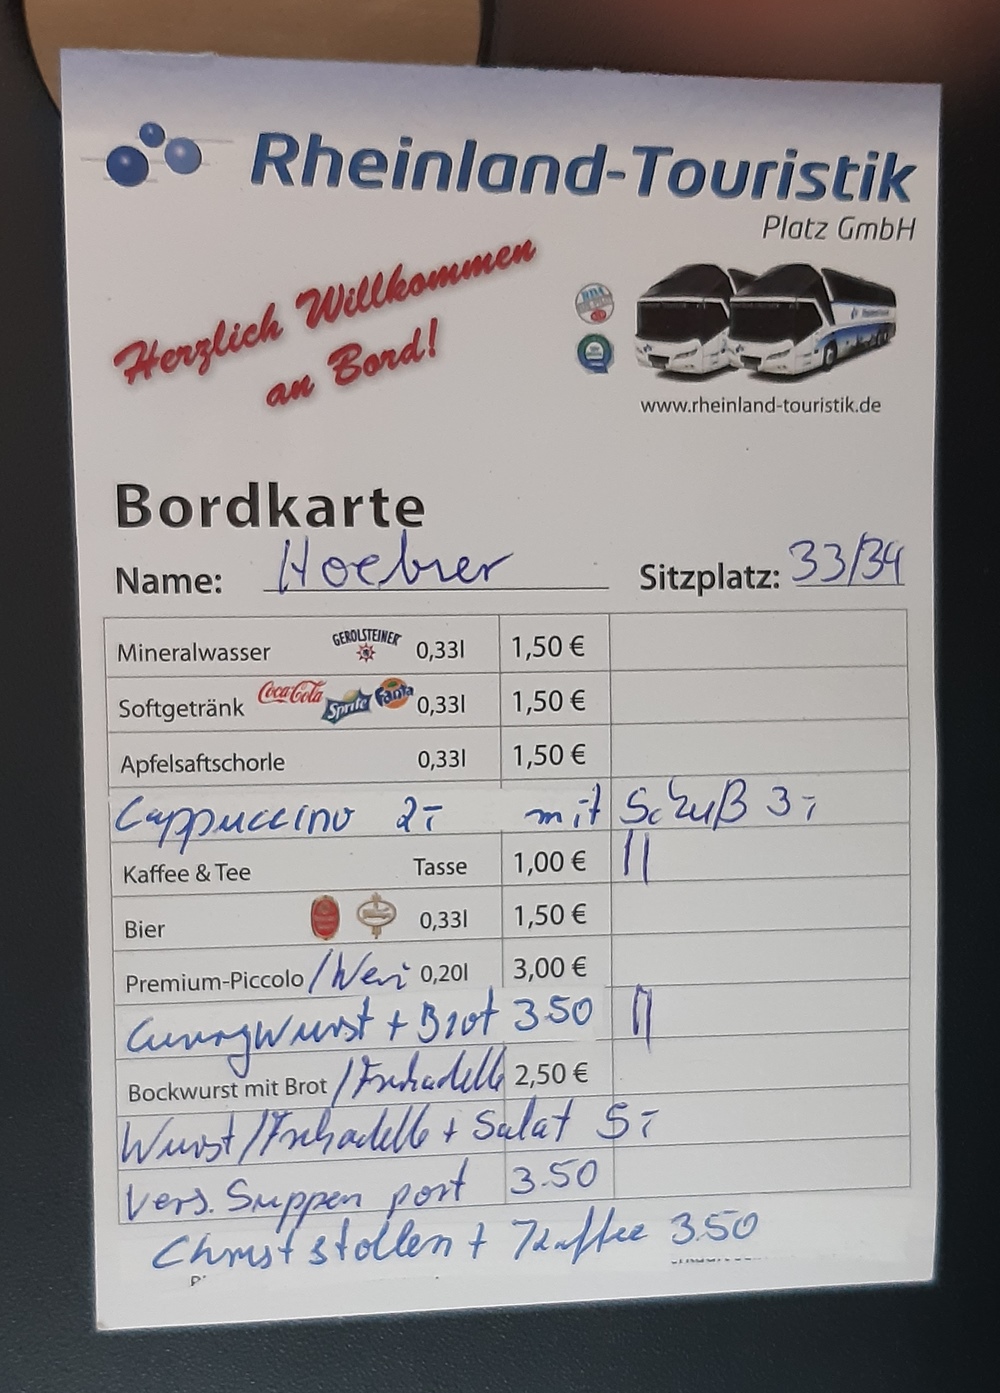 Rheinland-Touristik
Platz GmbH
Herzlich Willkommen
an Bord!
www.rheinland-touristik.de
Bordkarte
Name: Hoebner Sitzplatz: 33/34
Mineralwasser GEROLSTEINER 0,33l 1,50 €
Softgetränk Coca-Cola Sprite Fanta 0,33l 1,50 €
Apfelsaftschorle 0,33l 1,50 €
Cappuccino 2,- mit Schuß 3,-
Kaffee & Tee Tasse 1,00 € ||
Bier 0,33l 1,50 €
Premium-Piccolo /Wein 0,20l 3,00 €
Currywurst + Brot 3.50 ||
Bockwurst mit Brot /Frikadelle 2,50 €
Wurst/Frikadelle + Salat 5,-
Vers. Suppen port 3.50
Christstollen + Kaffee 3.50